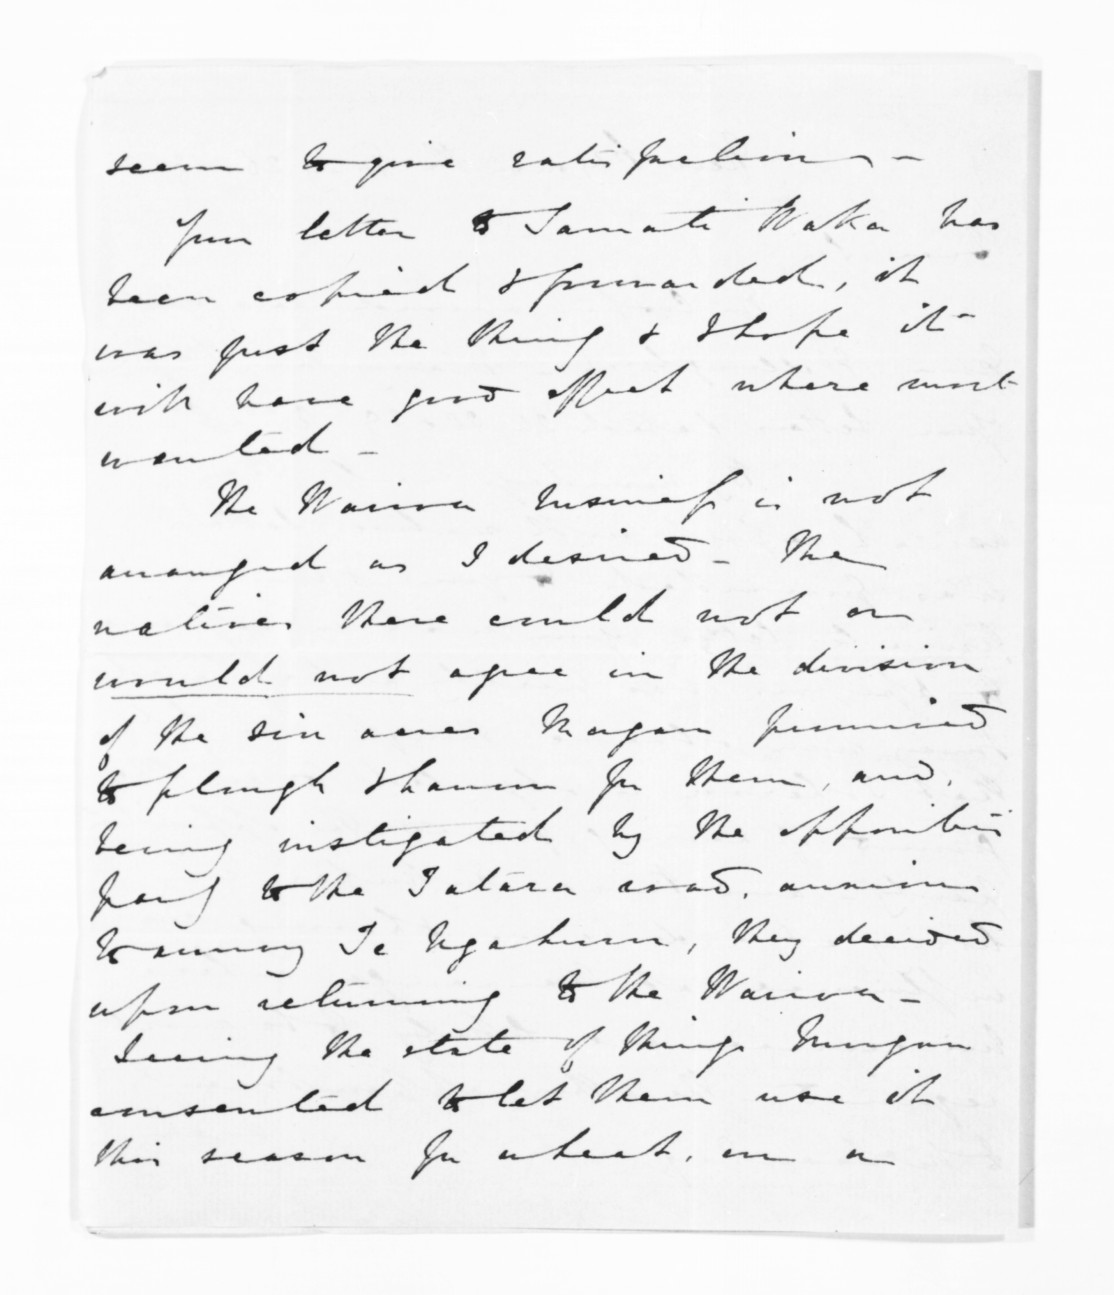 seem to give satisfaction -
Your letter to Tamati Waka has
been copied & forwarded, it
was just the thing & I hope it
will have good effect where most
wanted -
The Wairoa business is not
arranged as I desired - The
natives there could not or
would not agree in the division
of the six acres Morgan promised
to plough & harrow for them, and,
being instigated by the opposition
party to the Tatara road, anxious
to annoy Te Ngahuru, they decided
upon returning to the Wairoa -
Seeing the state of things Morgan
consented to let them use it
this season for wheat, on a